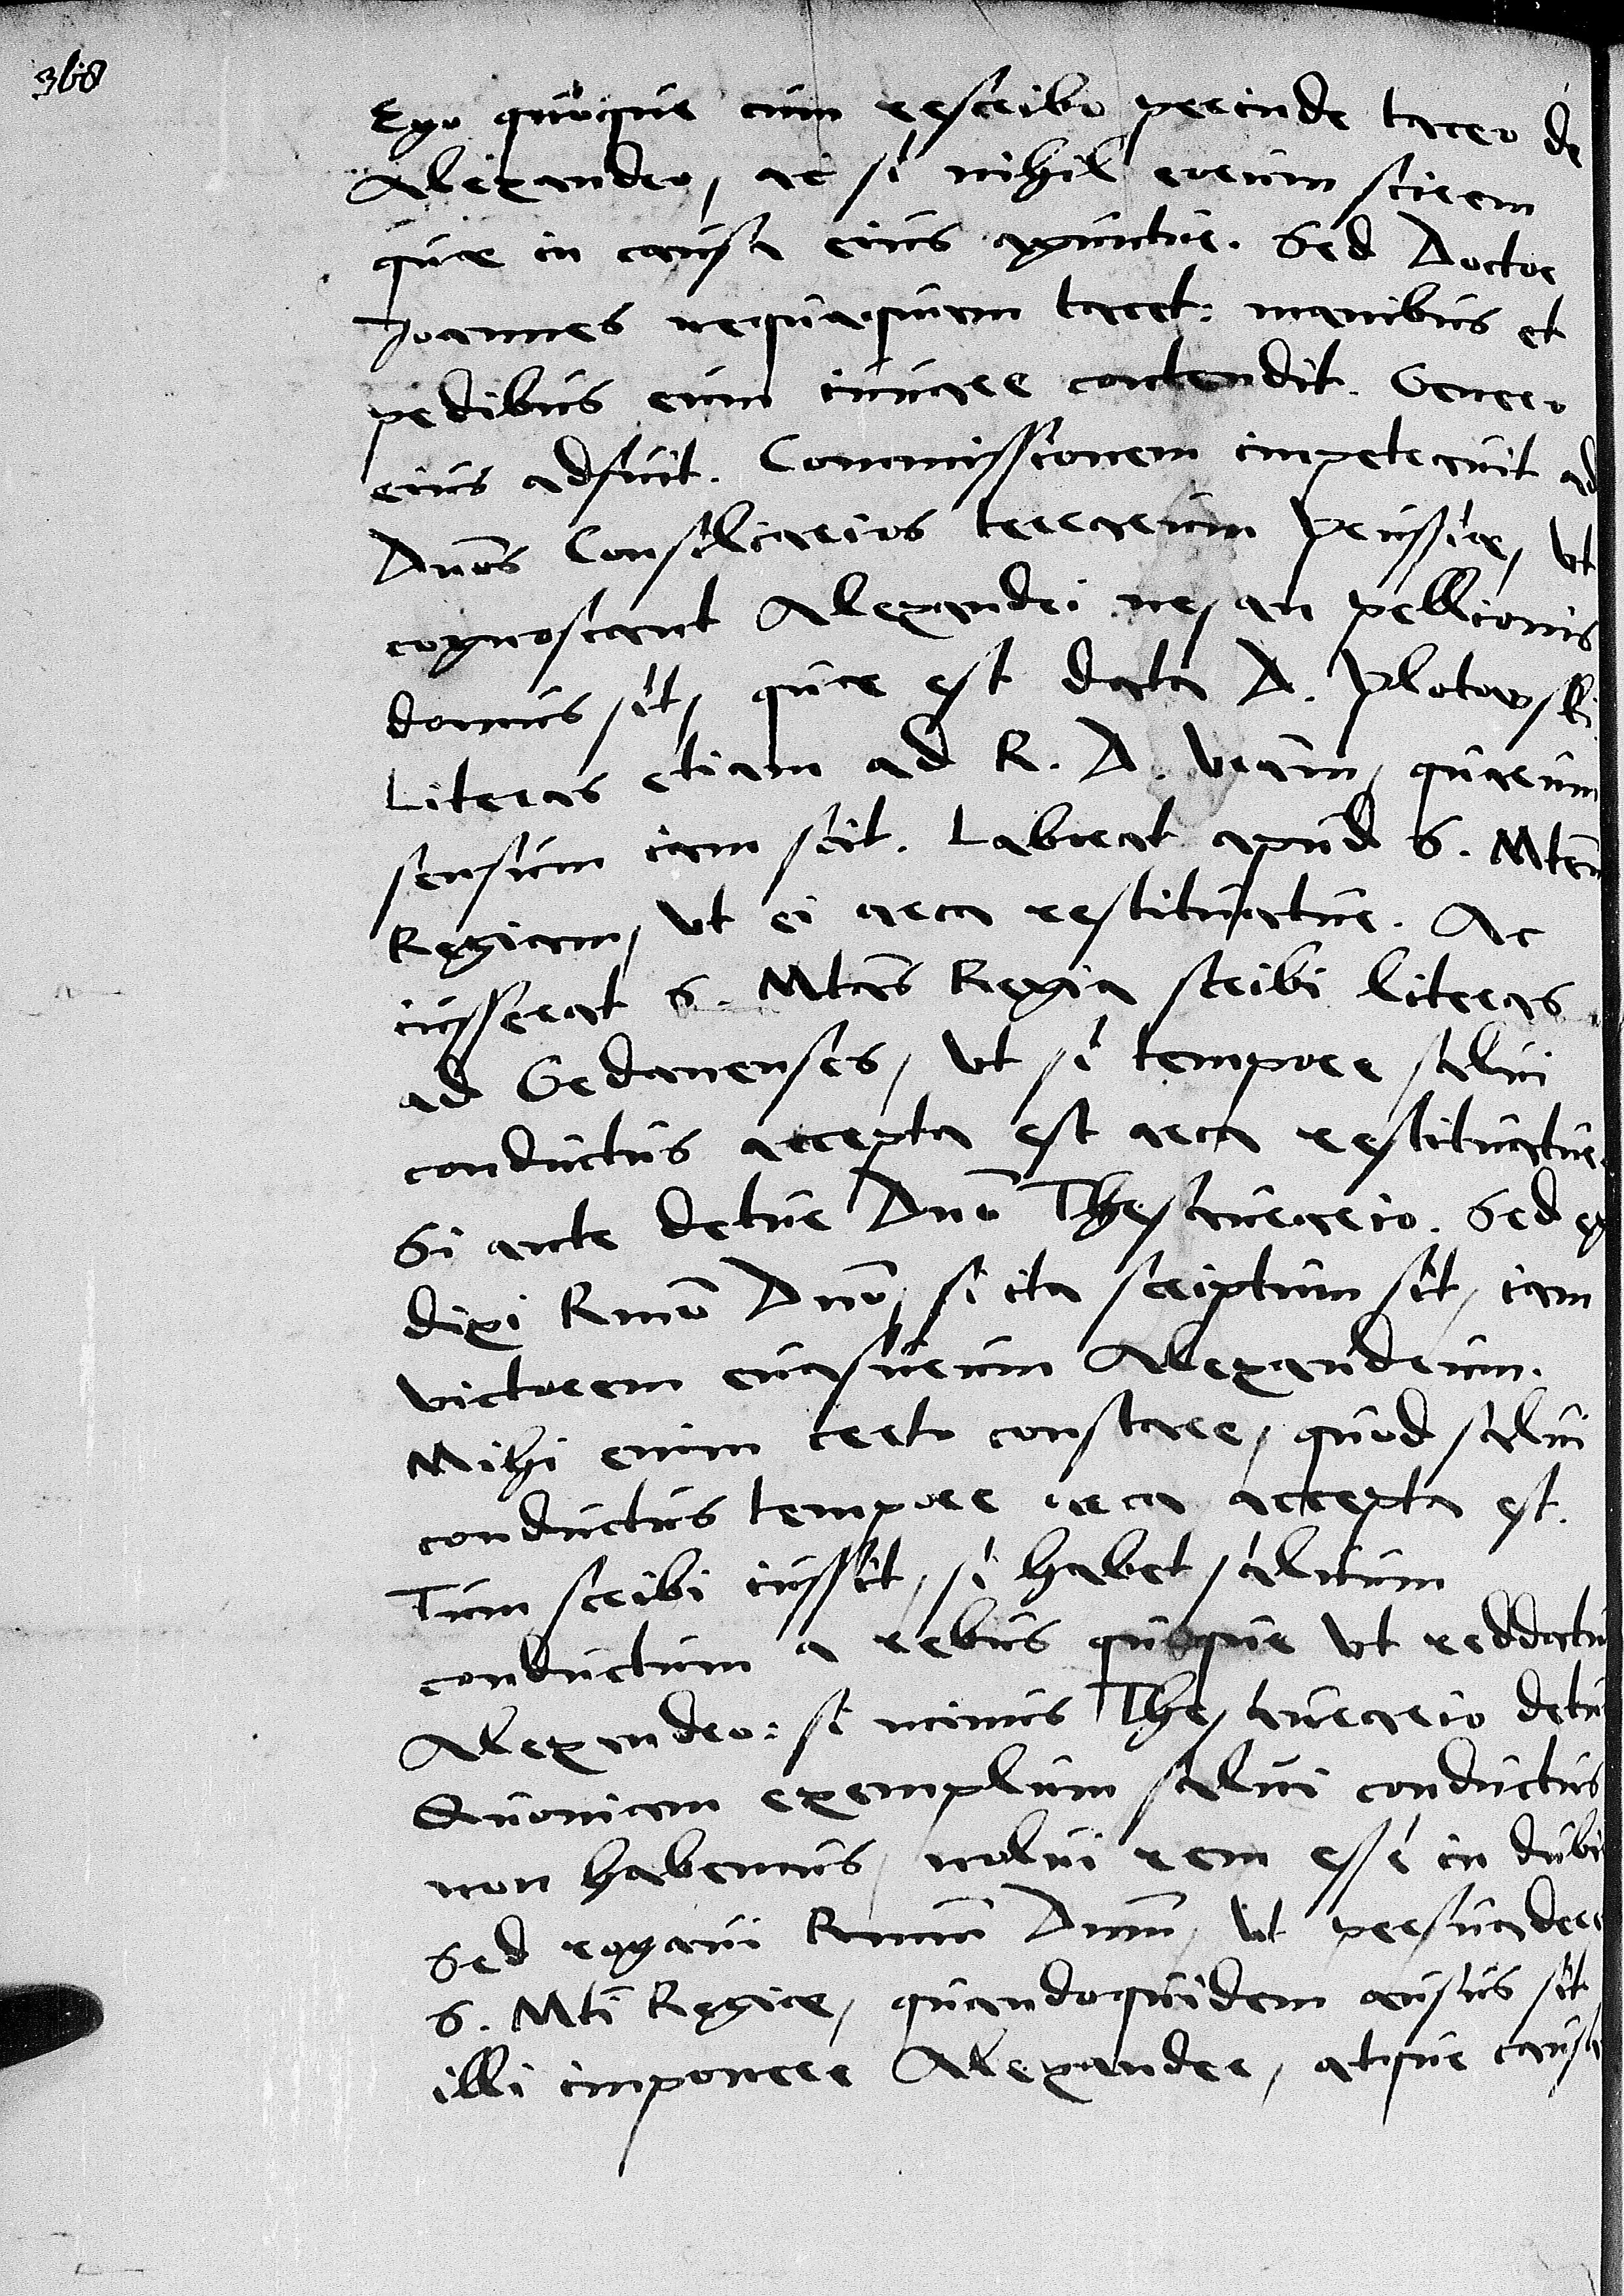 368
Ego quoque cum rescribo perinde taceo de
Alexandro, ac si nihil eorum scirem
quae in causa eius aguntur. Sed Doctor
Joannes nequaquam tacet: manibus et
pedibus eum iuuare contendit. Genero
eius adfuit. Commissionem impetrauit ad
Dnos Consiliarios terrarum Prussiae, vt
cognoscant Alexandri ne, an pellionis
domus sit, quae est data D. Plotowski
Literas etiam ad R. D. Vram, quarum
sensum iam scit. Laborat apud S. Mtem
Regiam, vt ei arca restituatur. Ac
iusserat S. Mtas Regia scribi literas
ad Gedanenses, vt si tempore salui
conductus accepta est arca restituatur.
Si ante detur Dno Thesaurario. Sed ego
dixi Rmo Dno, si ita scriptum sit, iam
victorem euasurum Alexandrum.
Mihi enim certo constare, quod salui
conductus tempore arca accepta est.
Tum scribi iussit, si habet saluum
conductum a rebus quoque vt reddatur
Alexandro: si minus Thesaurario detur
Quoniam exemplum salui conductus
non habemus, nolui rem esse in dubio
Sed rogaui Rmum Dnum, vt persuaderet
S. Mti Regiae, quandoquidem ausus sit
illi imponere Alexander, atque causa